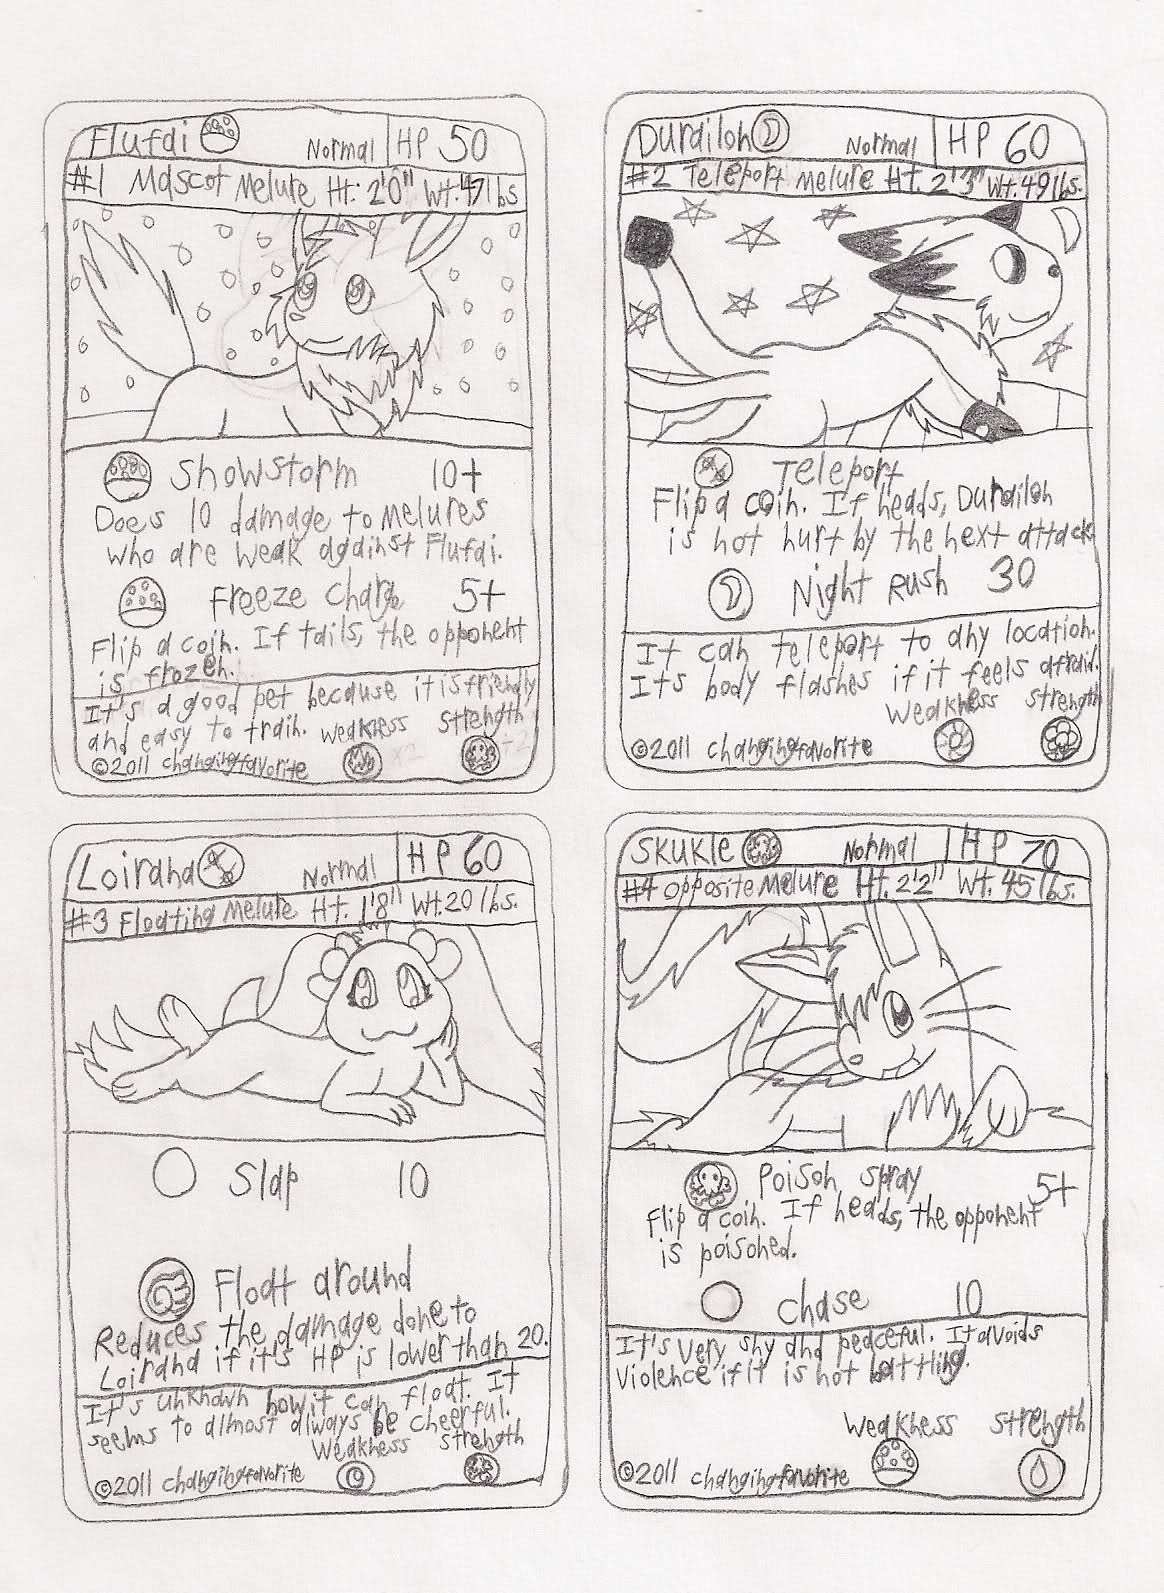 Flufdi Normal HP 50
#1 Mascot Melure Ht: 2'0" Wt. 47 lbs
Snowstorm 10+
Does 10 damage to melures
who are weak against Flufdi.
Freeze Charge 5+
Flip a coin. If tails, the opponent
is frozen.
It's a good pet because it is friendly
and easy to train. Weakness Strength
x2 +2
©2011 changingfavorite
Durailon Normal HP 60
#2 Teleport Melure Ht. 2'3" Wt. 49 lbs.
Teleport
Flip a coin. If heads, Durailon
is not hurt by the next attack.
Night Rush 30
It can teleport to any location.
Its body flashes if it feels afraid.
Weakness Strength
©2011 changingfavorite
Loirana Normal HP 60
#3 Floating Melure Ht. 1'8" Wt. 20 lbs.
Slap 10
Float around
Reduces the damage done to
Loirana if it's HP is lower than 20.
It's unknown how it can float. It
seems to almost always be cheerful.
Weakness Strength
©2011 changingfavorite
Skukle Normal HP 70
#4 Opposite Melure Ht. 2'2" Wt. 45 lbs.
Poison spray 5+
Flip a coin. If heads, the opponent
is poisoned.
Chase 10
It's very shy and peaceful. It avoids
violence if it is not battling.
Weakness Strength
©2011 changingfavorite